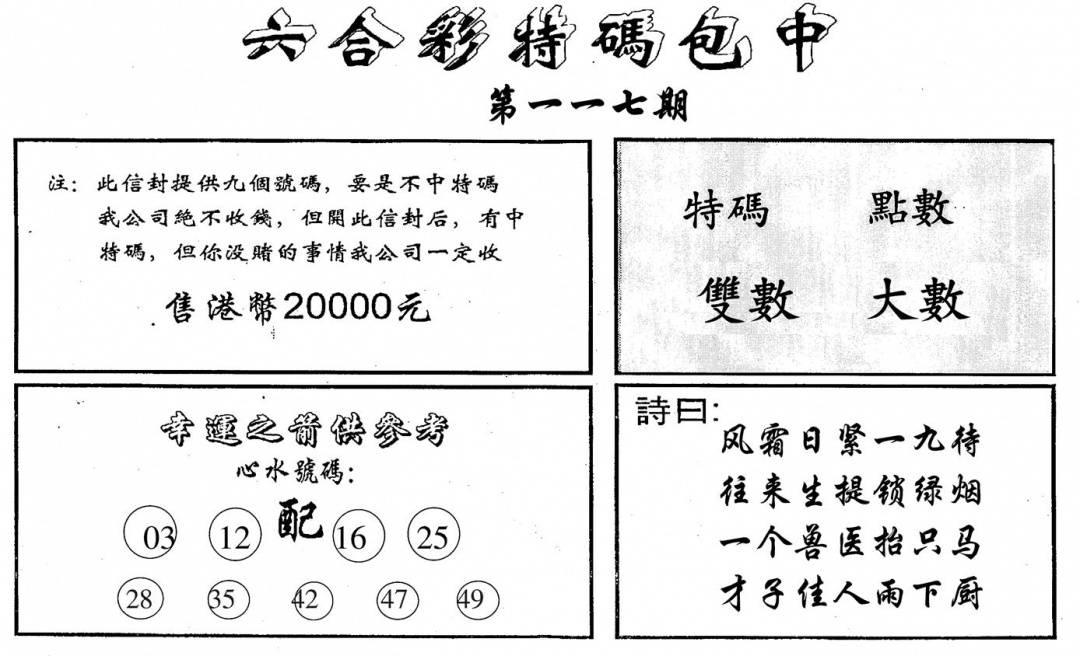 六合彩特碼包中
第一一七期
注: 此信封提供九個號碼，要是不中特碼
我公司絶不收錢，但開此信封后，有中
特碼，但你没賭的事情我公司一定收
售港幣20000元
特碼 點數
雙數 大數
幸運之箭供參考
心水號碼:
03 12 配 16 25
28 35 42 47 49
詩曰:
风霜日紧一九待
往来生提锁绿烟
一个兽医抬只马
才子佳人雨下厨